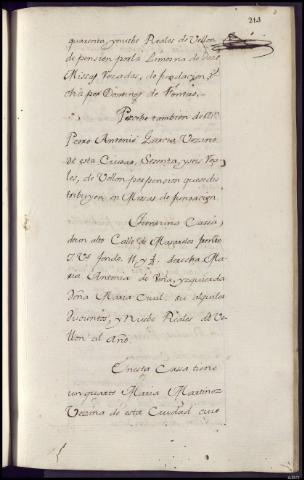 213
quarenta, y nuebe Reales de Vellon
de pension por la Limosna de Doze
Missas Rezadas, de fundacion
cha por Domingo de Ventas.
Percibe tambien de Dn
Pedro Antonio Garcia Vezino
de esta Ciudad, Sesenta, y seis Rea
les, de Vellon por pension que se dis
tribuyen en Missas de fundacion.
Casa
de un alto Calle de
Vs fondo 11, y ½. derecha Ma
ria Antonia de Peña, yzquierda
Doña Maria su alquiler
Ducientos, y Nuebe Reales de Ve
llon al Año.
En esta Cassa tiene
un quarto Maria Martinez
Vezina de esta Ciudad cuio